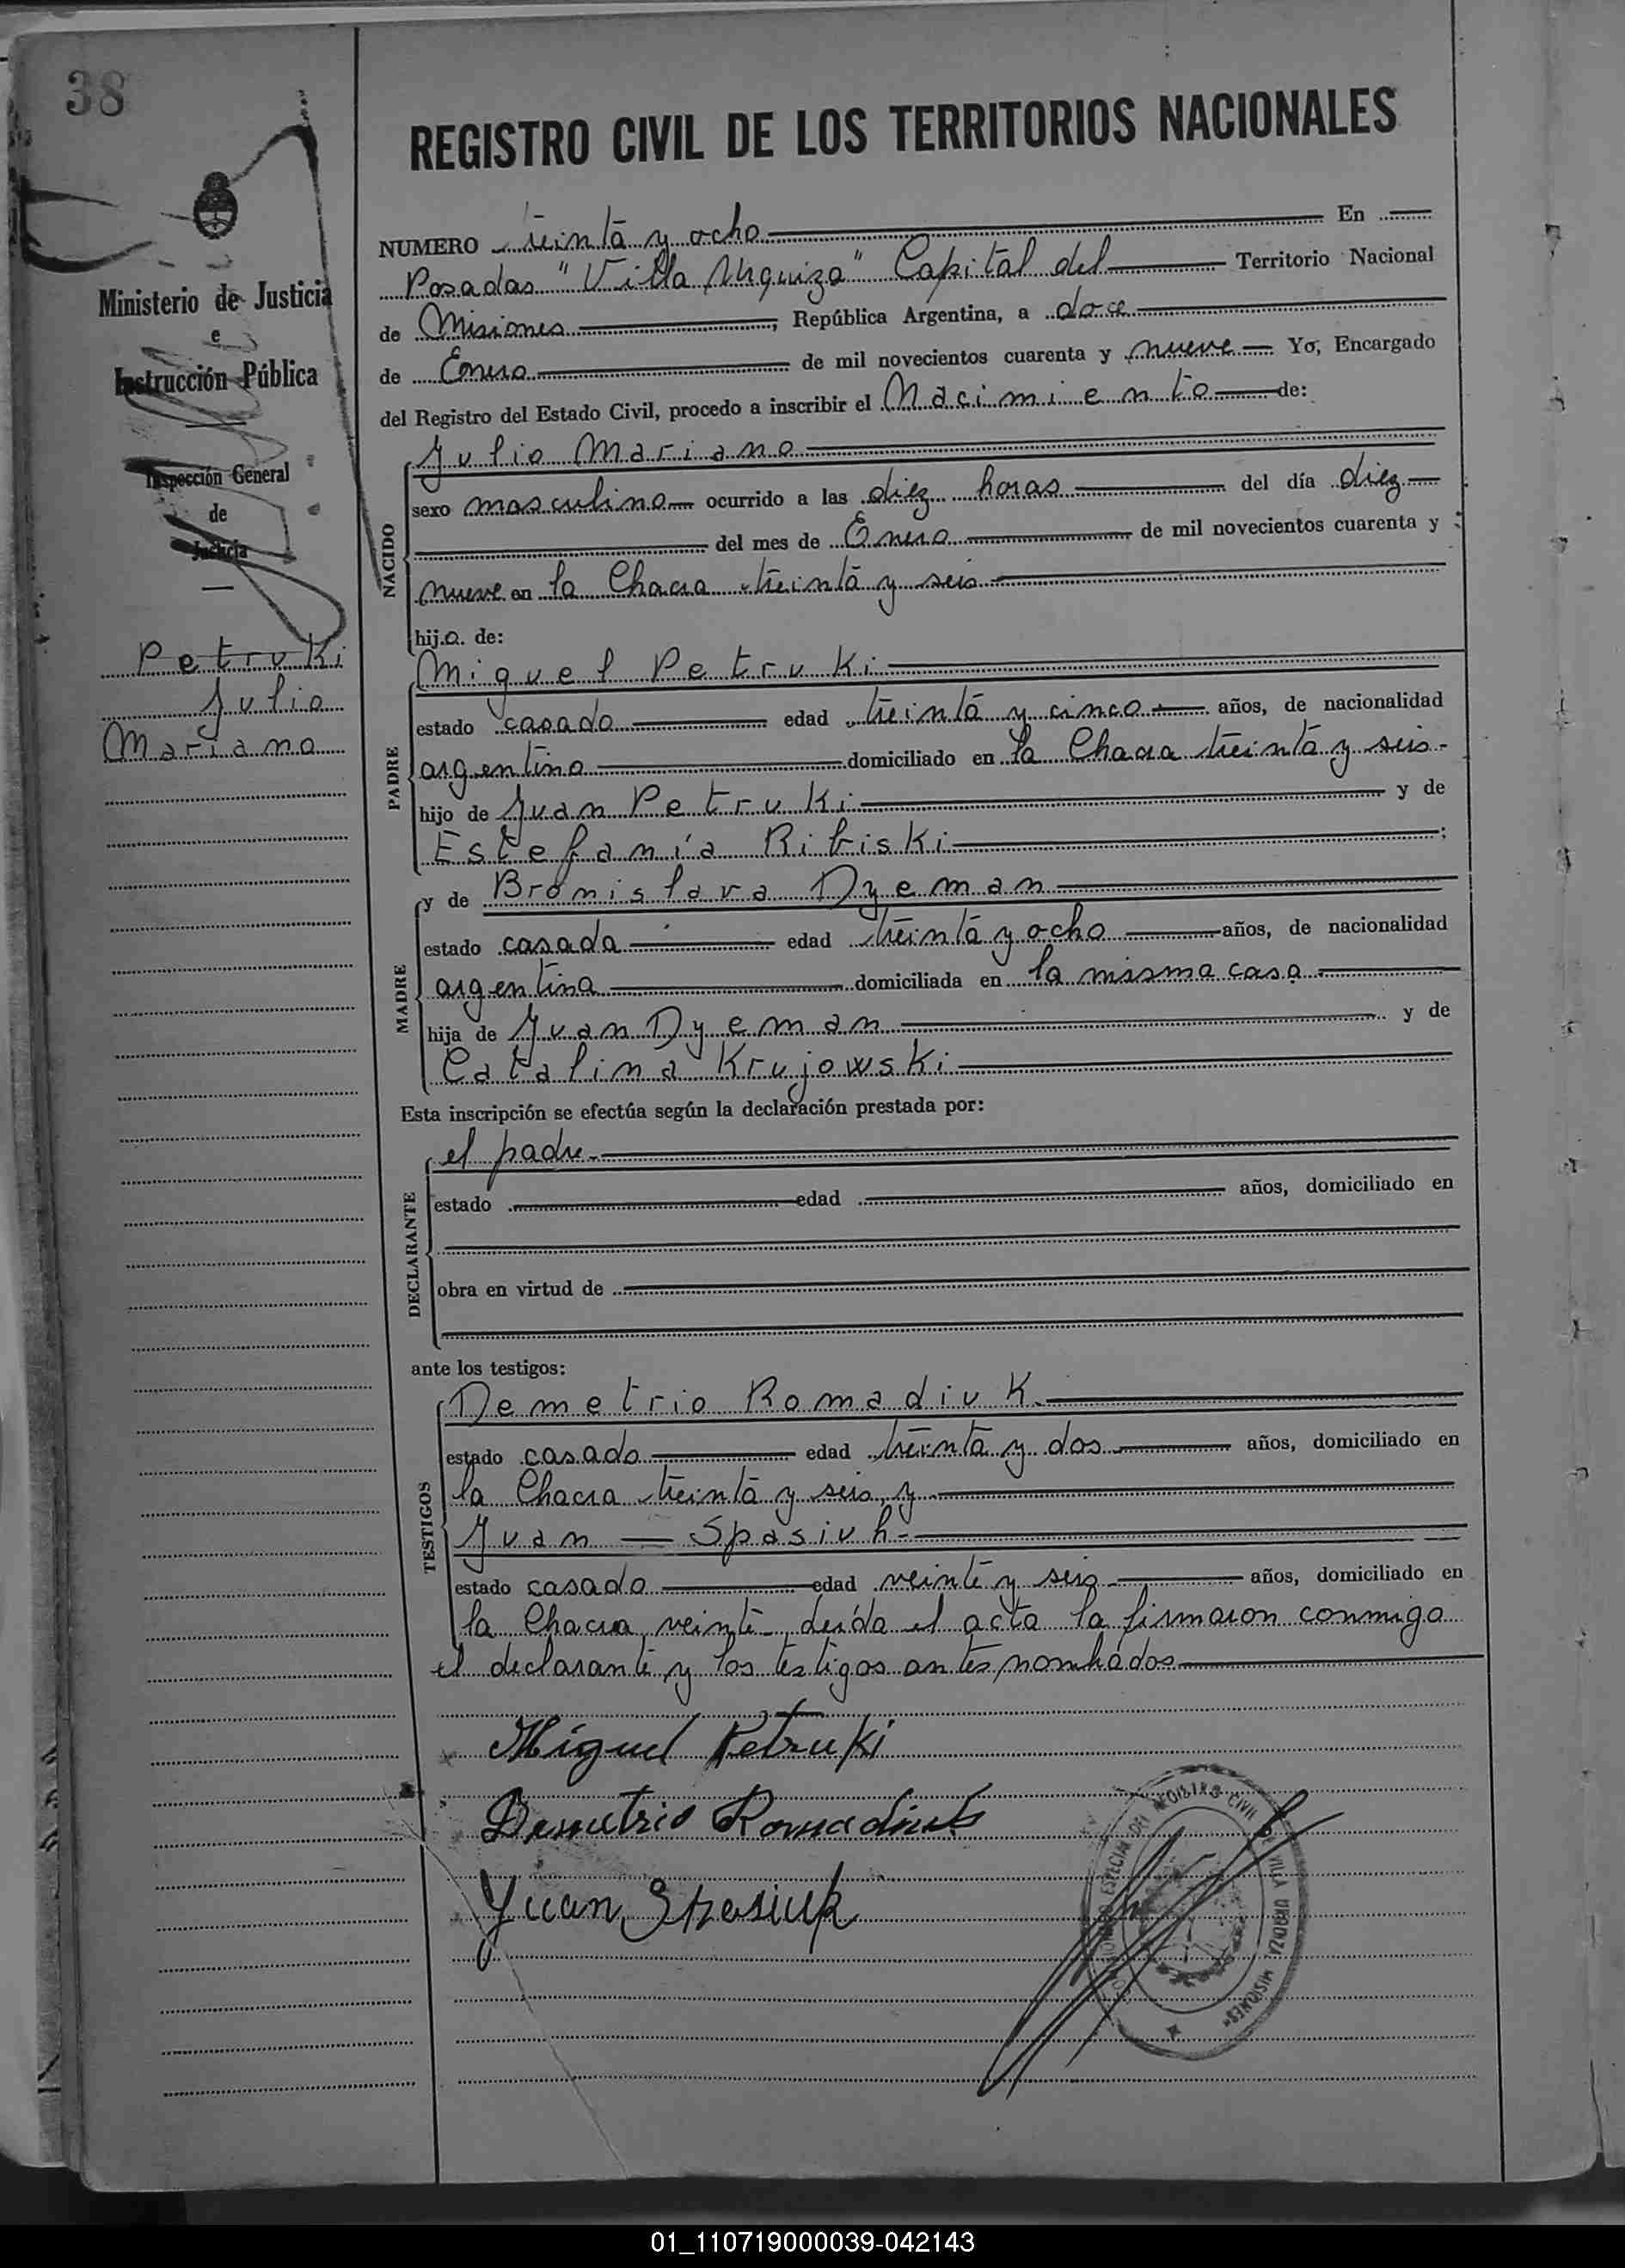 38
REGISTRO CIVIL DE LOS TERRITORIOS NACIONALES
Ministerio de Justicia
e
Instrucción Pública
Inspección General
de
Justicia
Petruki
Julio
Mariano
NUMERO treinta y ocho En
Posadas "Villa Urquiza" Capital del Territorio Nacional
de Misiones, República Argentina, a doce
de Enero de mil novecientos cuarenta y nueve Yo, Encargado
del Registro del Estado Civil, procedo a inscribir el Nacimiento de:
NACIDO
Julio Mariano
sexo masculino ocurrido a las diez horas del día diez
del mes de Enero de mil novecientos cuarenta y
nueve en la Chacra treinta y seis
hijo de:
PADRE
Miguel Petruki
estado casado edad treinta y cinco años, de nacionalidad
argentino domiciliado en la Chacra treinta y seis-
hijo de Juan Petruki y de
Estefanía Ribiski;
MADRE
y de Bronislava Dyeman
estado casada edad treinta y ocho años, de nacionalidad
argentina domiciliada en la misma casa
hija de Juan Dyeman y de
Catalina Krujowski
Esta inscripción se efectúa según la declaración prestada por:
DECLARANTE
el padre-
estado edad años, domiciliado en
obra en virtud de
ante los testigos:
TESTIGOS
Demetrio Romadiuk.
estado casado edad treinta y dos años, domiciliado en
la Chacra treinta y seis, y
Juan Spasiuk-
estado casado edad veinte y seis años, domiciliado en
la Chacra veinte- leída el acta la firmaron conmigo
el declarante y los testigos antes nombrados
Miguel Petruki
Demetrio Romadiuk
Juan Spasiuk
REGISTRO CIVIL VILLA URQUIZA MISIONES
01_110719000039-042143